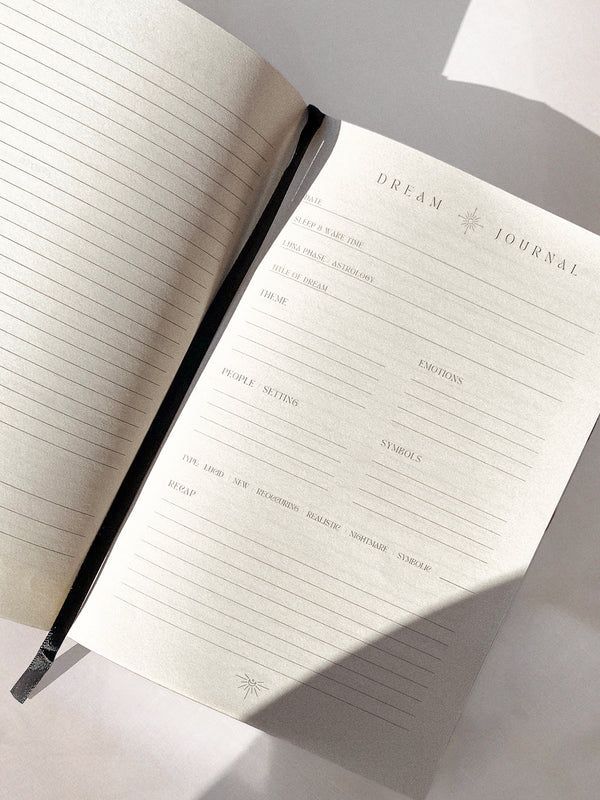 DREAM JOURNAL
DATE
SLEEP & WAKE TIME
LUNA PHASE / ASTROLOGY
TITLE OF DREAM
THEME
EMOTIONS
PEOPLE / SETTING
SYMBOLS
TYPE: LUCID / NEW / REOCCURING / REALISTIC / NIGHTMARE / SYMBOLIC
RECAP